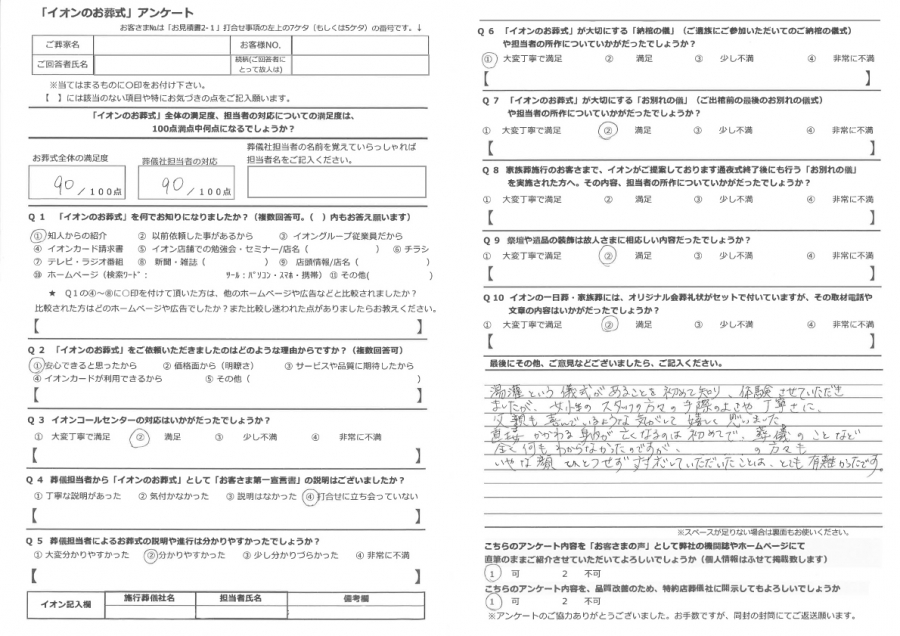 「イオンのお葬式」アンケート
お客さま№は「お見積書2-1」打合せ事項の左上の7ケタ(もしくは5ケタ)の番号です。↓
ご葬家名 お客様NO.
ご回答者氏名 続柄(ご回答者にとって故人は)
※当てはまるものに〇印をお付け下さい。
【 】には該当のない項目や特にお気づきの点をご記入願います。
「イオンのお葬式」全体の満足度、担当者の対応についての満足度は、
100点満点中何点になるでしょうか?
お葬式全体の満足度 葬儀社担当者の対応 葬儀社担当者の名前を覚えていらっしゃれば
担当者名をご記入ください。
90/100点 90/100点
Q 1 「イオンのお葬式」を何でお知りになりましたか?(複数回答可。( )内もお答え願います)
① 知人からの紹介 ② 以前依頼した事があるから ③ イオングループ従業員だから
④ イオンカード請求書 ⑤ イオン店舗での勉強会・セミナー/店名( ) ⑥ チラシ
⑦ テレビ・ラジオ番組 ⑧ 新聞・雑誌( ) ⑨ 店頭情報/店名( )
⑩ ホームページ(検索ワード: ツール:パソコン・スマホ・携帯) ⑪ その他( )
★ Q1の④~⑧に〇印を付けて頂いた方は、他のホームページや広告などと比較されましたか?
比較された方はどのホームページや広告でしたか?また比較し迷われた点がありましたらお教えください。
【 】
Q 2 「イオンのお葬式」をご依頼いただきましたのはどのような理由からですか?(複数回答可)
① 安心できると思ったから ② 価格面から(明瞭さ) ③ サービスや品質に期待したから
④ イオンカードが利用できるから ⑤ その他( )
【 】
Q 3 イオンコールセンターの対応はいかがだったでしょうか?
① 大変丁寧で満足 ② 満足 ③ 少し不満 ④ 非常に不満
【 】
Q 4 葬儀担当者から「イオンのお葬式」として「お客さま第一宣言書」の説明はございましたか?
① 丁寧な説明があった ② 気付かなかった ③ 説明はなかった ④ 打合せに立ち会っていない
【 】
Q 5 葬儀担当者によるお葬式の説明や進行は分かりやすかったでしょうか?
① 大変分かりやすかった ② 分かりやすかった ③ 少し分かりづらかった ④ 非常に不満
【 】
イオン記入欄 施行葬儀社名 担当者氏名 備考欄
Q 6 「イオンのお葬式」が大切にする「納棺の儀」(ご遺族にご参加いただいてのご納棺の儀式)
や担当者の所作についていかがだったでしょうか?
① 大変丁寧で満足 ② 満足 ③ 少し不満 ④ 非常に不満
【 】
Q 7 「イオンのお葬式」が大切にする「お別れの儀」(ご出棺前の最後のお別れの儀式)
や担当者の所作についていかがだったでしょうか?
① 大変丁寧で満足 ② 満足 ③ 少し不満 ④ 非常に不満
【 】
Q 8 家族葬施行のお客さまで、イオンがご提案しております通夜式終了後にも行う「お別れの儀」
を実施された方へ。その内容、担当者の所作についていかがだったでしょうか?
① 大変丁寧で満足 ② 満足 ③ 少し不満 ④ 非常に不満
【 】
Q 9 祭壇や遺品の装飾は故人さまに相応しい内容だったでしょうか?
① 大変丁寧で満足 ② 満足 ③ 少し不満 ④ 非常に不満
【 】
Q 10 イオンの一日葬・家族葬には、オリジナル会葬礼状がセットで付いていますが、その取材電話や
文章の内容はいかがだったでしょうか?
① 大変丁寧で満足 ② 満足 ③ 少し不満 ④ 非常に不満
【 】
最後にその他、ご意見などございましたら、ご記入ください。
湯灌という儀式があることを初めて知り、体験させていただき
ましたが、女性のスタッフの方々の手際のよさや丁寧さに、
父親も喜んでいるような気がして嬉しく思いました。
直接かかわる身内が亡くなるのは初めてで、葬儀のことなど
全く何もわからなかったのですが、 の方々も
いやな顔ひとつせず対応していただいたことは、とても有難かったです。
※スペースが足りない場合は裏面もお使いください。
こちらのアンケート内容を「お客さまの声」として弊社の機関誌やホームページにて
直筆のままご紹介させていただいてよろしいでしょうか(個人情報はふせて掲載致します)
1 可 2 不可
こちらのアンケート内容を、品質改善のため、特約店葬儀社に開示してもよろしいでしょうか
1 可 2 不可
※アンケートのご協力ありがとうございました。お手数ですが、同封の封筒にてご返送願います。